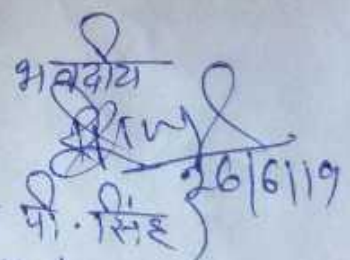 भवदीय
26/6/19
पी. सिंह